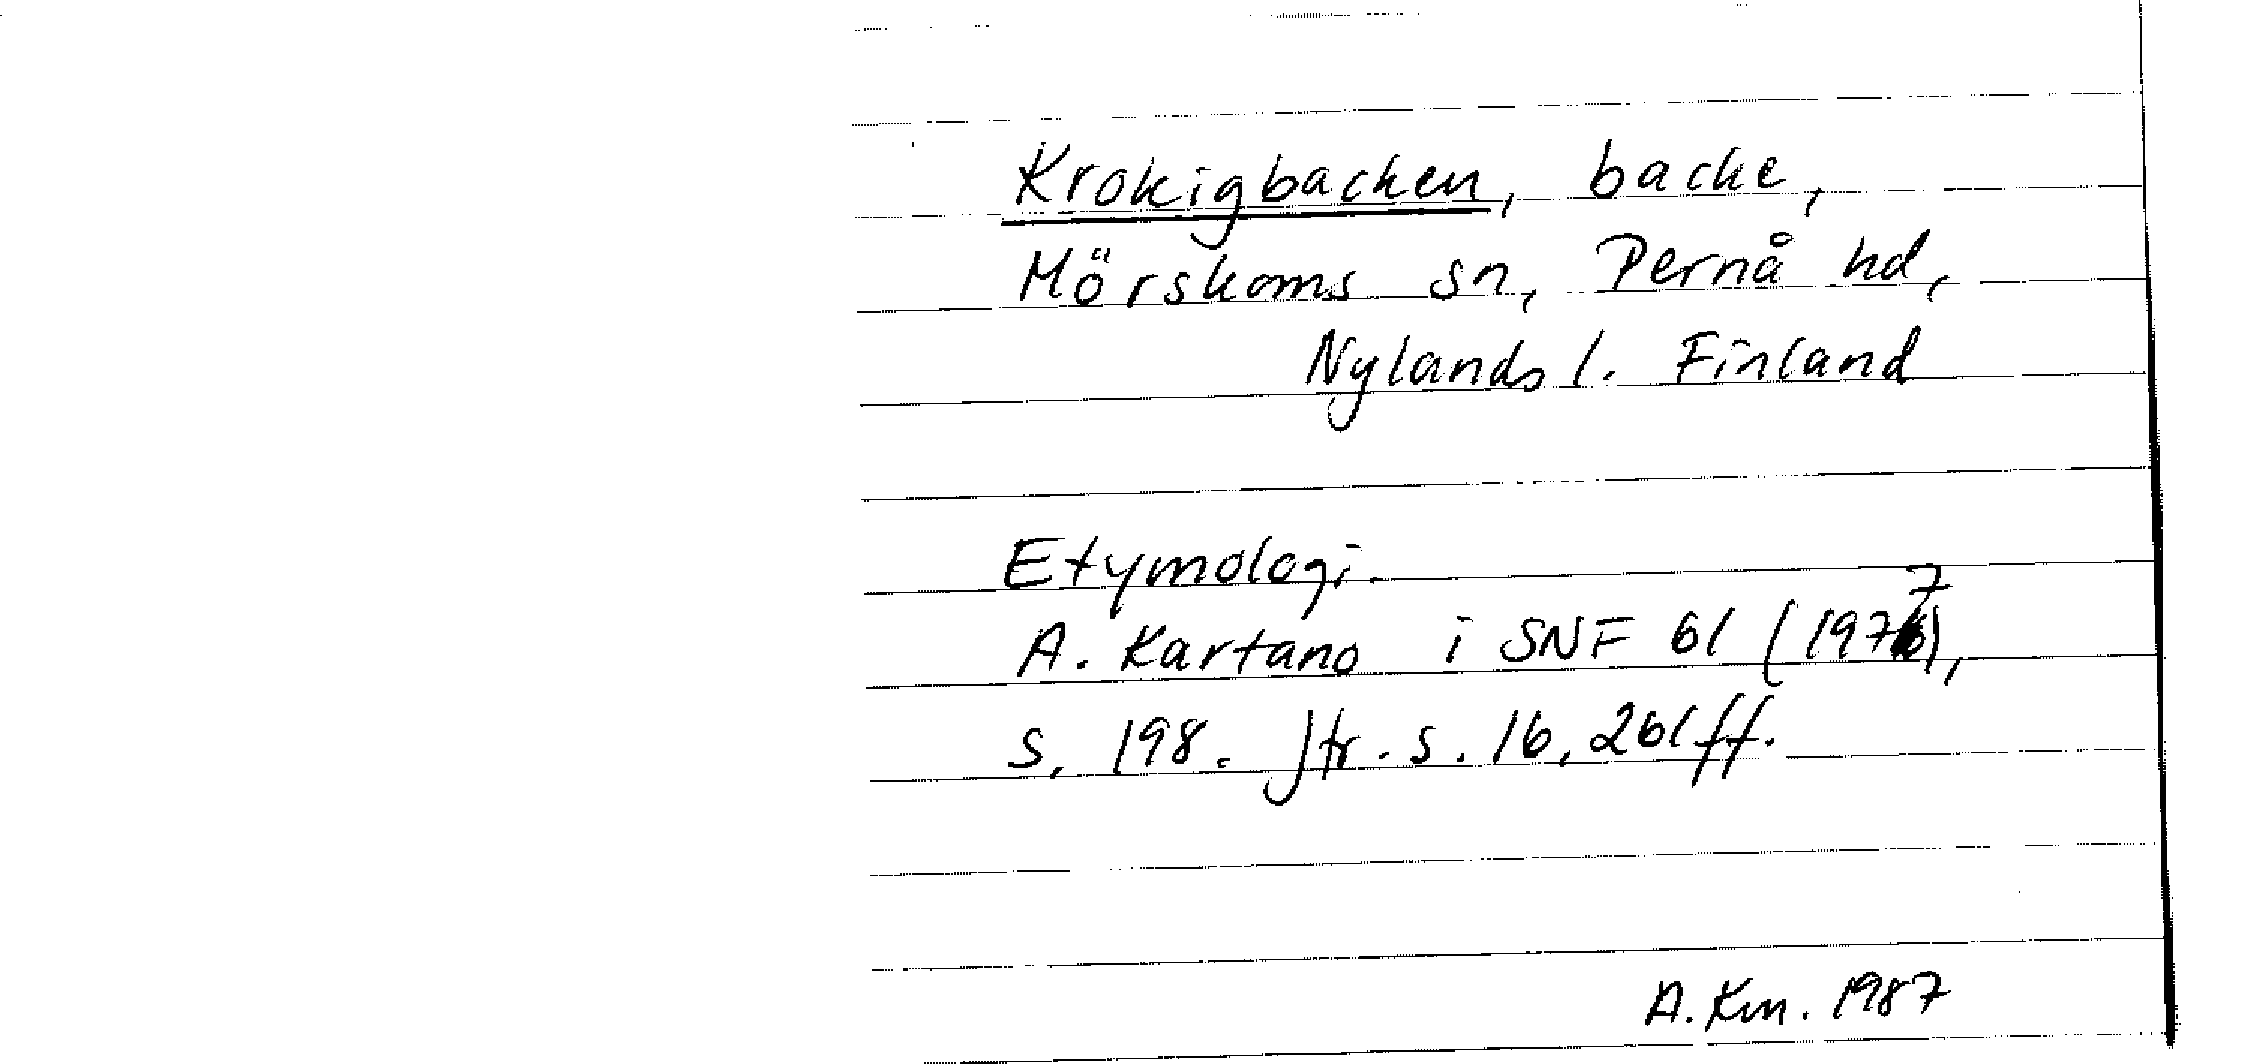 Krokigbacken, backe,
Mörskoms sn, Pernå hd,
Nylands l. Finland
Etymologi.
A. Kartano i SNF 61 (1977),
s. 198. Jfr. s. 16, 261 ff.
A. Km. 1987